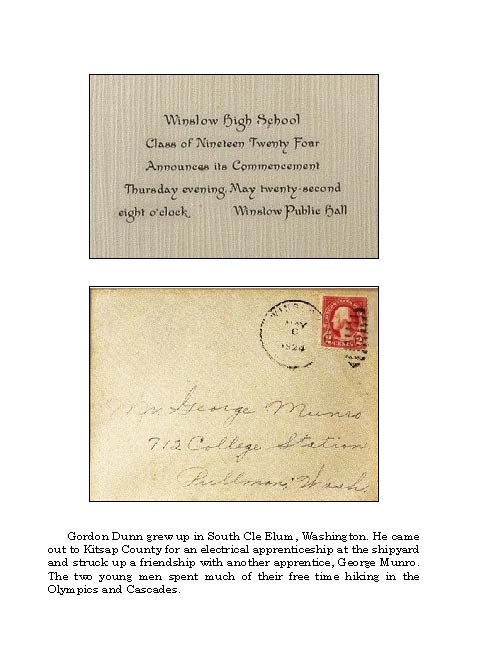 Winslow High School
Class of Nineteen Twenty Four
Announces its Commencement
Thursday evening, May twenty-second
eight o'clock Winslow Public Hall
MAY
6
1924
2 CENTS 2
Mr. George Munro
712 College Station
Pullman, Wash.
Gordon Dunn grew up in South Cle Elum, Washington. He came
out to Kitsap County for an electrical apprenticeship at the shipyard
and struck up a friendship with another apprentice, George Munro.
The two young men spent much of their free time hiking in the
Olympics and Cascades.